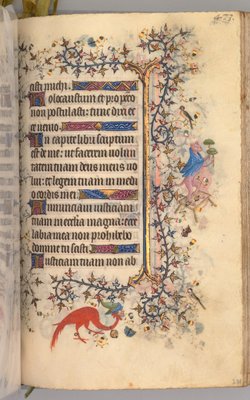 423
cisti michi.
Holocaustum et pro pecc
non postulasti: tunc dixi ec
ce uenio.
In capite libri scriptum
est de me: ut facerem uolun
tatem tuam deus meus uo
lui: et legem tuam in medi
o cordis mei.
Annunciaui iusticiam
tuam in ecclesia magna: ecce
labia mea non prohibebo
domine tu scisti.
Iusticiam tuam non ab